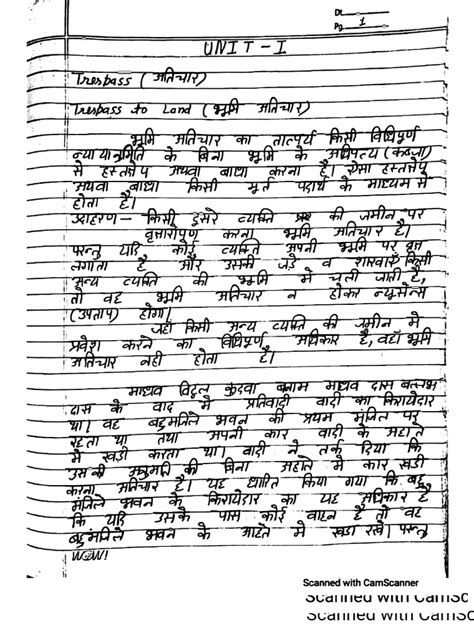 Dt.
Pg. 1
UNIT - I
Trespass ( अतिचार)
Trespass to Land ( भूमि अतिचार)
भूमि अतिचार का तात्पर्य किसी विधिपूर्ण
के बिना भूमि के आधिपत्य (कब्जा)
से हस्तक्षेप अथवा बाधा करना है। ऐसा हस्तक्षेप
अथवा बाधा किसी मूर्त पदार्थ के माध्यम से
होता है।
उदाहरण— किसी दुसरे व्यक्ति की जमीन पर
वृक्षारोपण करना भूमि अतिचार है।
परन्तु यदि कोई व्यक्ति अपनी भूमि पर वृक्ष
लगाता है और उसकी जड़े व शाखाएँ किसी
अन्य व्यक्ति की भूमि में चली जाती है,
तो वह भूमि अतिचार न होकर न्यूसेन्स
(उपताप) होगा।
जहाँ किसी अन्य व्यक्ति की जमीन में
प्रवेश करने का विधिपूर्ण अधिकार है, वहाँ भूमि
अतिचार नही होता है।
माधव विट्ठल कुदवा बनाम माधव दास बल्लभ
दास के वाद में प्रतिवादी वादी का किरायेदार
था। वह बहुमंजिले भवन की प्रथम मंजिल पर
रहता था तथा अपनी कार वादी के अहाते
में खडी करता था। वादी ने तर्क दिया कि
उसकी अनुमति की बिना अहाते में कार खडी
करना अतिचार है। यह धारित किया गया कि बहु
मंजिले भवन के किरायेदार का यह अधिकार है
कि यदि उसके पास कोई वाहन है तो वह
बहुमंजिले भवन के अहाते में खडा रखे। परन्तु
Scanned with CamScanner
Scanned with CamSc
Scanned with CamSc